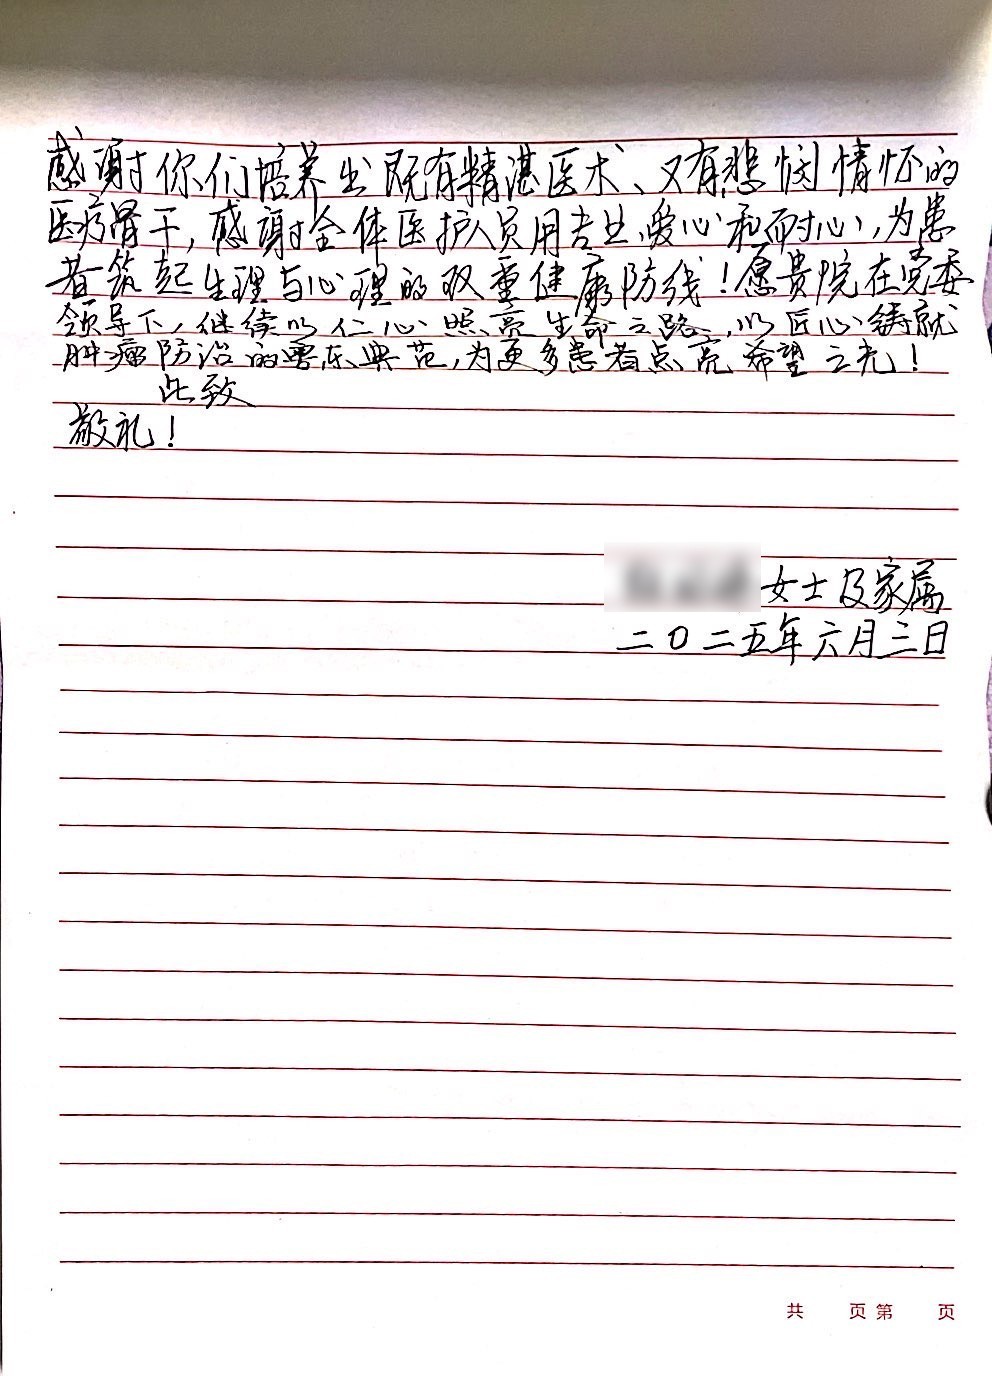 感谢你们培养出既有精湛医术、又有悲悯情怀的
医疗骨干,感谢全体医护人员用专业、爱心和耐心,为患
者筑起生理与心理的双重健康防线!愿贵院在党委
领导下,继续以仁心照亮生命之路,以匠心铸就
肿瘤防治的粤东典范,为更多患者点亮希望之光!
此致
敬礼!
女士及家属
二〇二五年六月三日
共 页 第 页